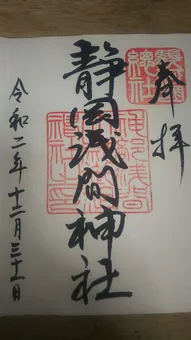 奉拝
静岡浅間神社
令和二年十二月三十一日